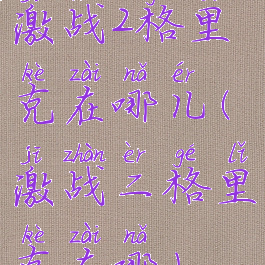 激战2格里
kè zài nǎ ér
克在哪儿(
jī zhàn èr gé lǐ
激战二格里
kè zài nǎ
克在哪儿